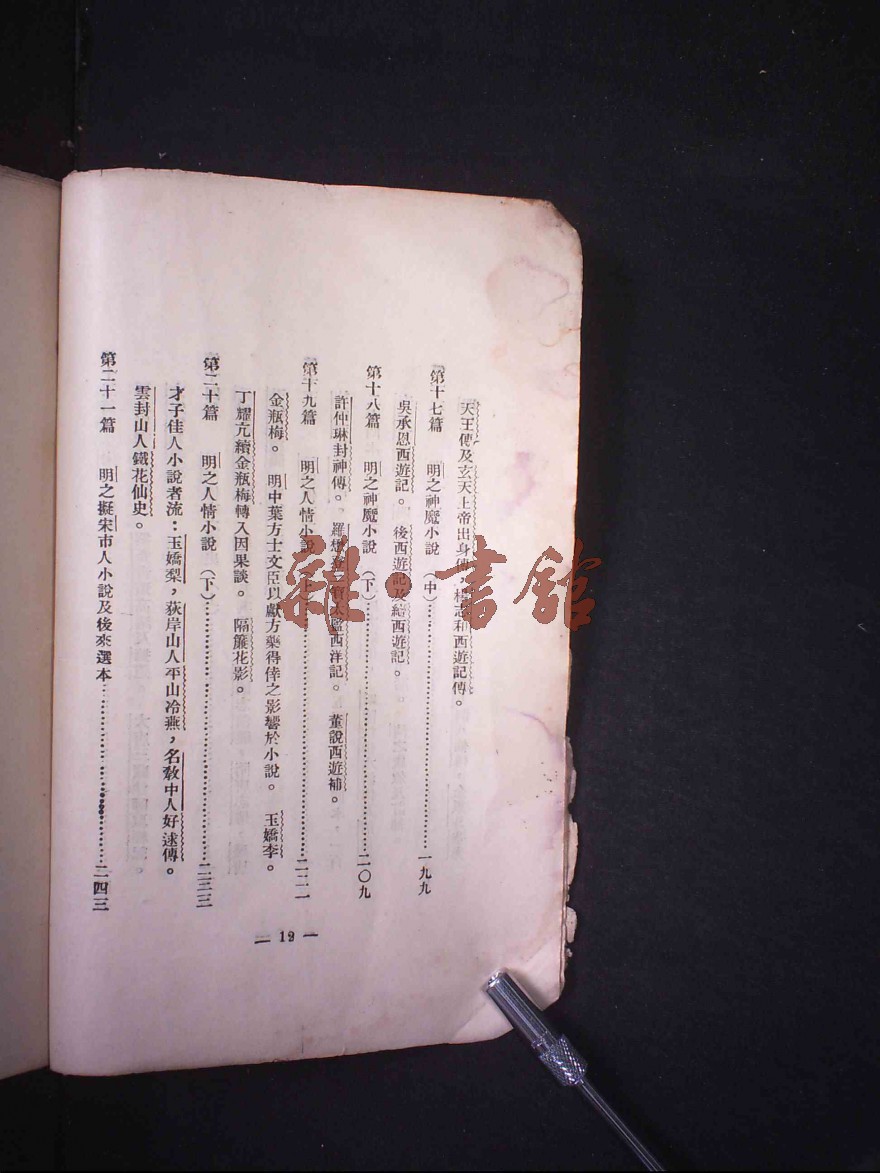 天王傳及玄天上帝出身傳。楊志和西遊記傳。
第十七篇 明之神魔小說(中)……一九九
吳承恩西遊記。 後西遊記及續西遊記。
第十八篇 明之神魔小說(下)……二〇九
許仲琳封神傳。 羅懋登三寶太監西洋記。 董說西遊補。
第十九篇 明之人情小說(上)……二二一
金瓶梅。 明中葉方士文臣以獻方藥得倖之影響於小說。 玉嬌李。
丁耀亢續金瓶梅轉入因果談。 隔簾花影。
第二十篇 明之人情小說(下)……二三三
才子佳人小說者流:玉嬌梨,荻岸山人平山冷燕,名教中人好逑傳。
雲封山人鐵花仙史。
第二十一篇 明之擬宋市人小說及後來選本……二四三
— 19 —
雜·書館